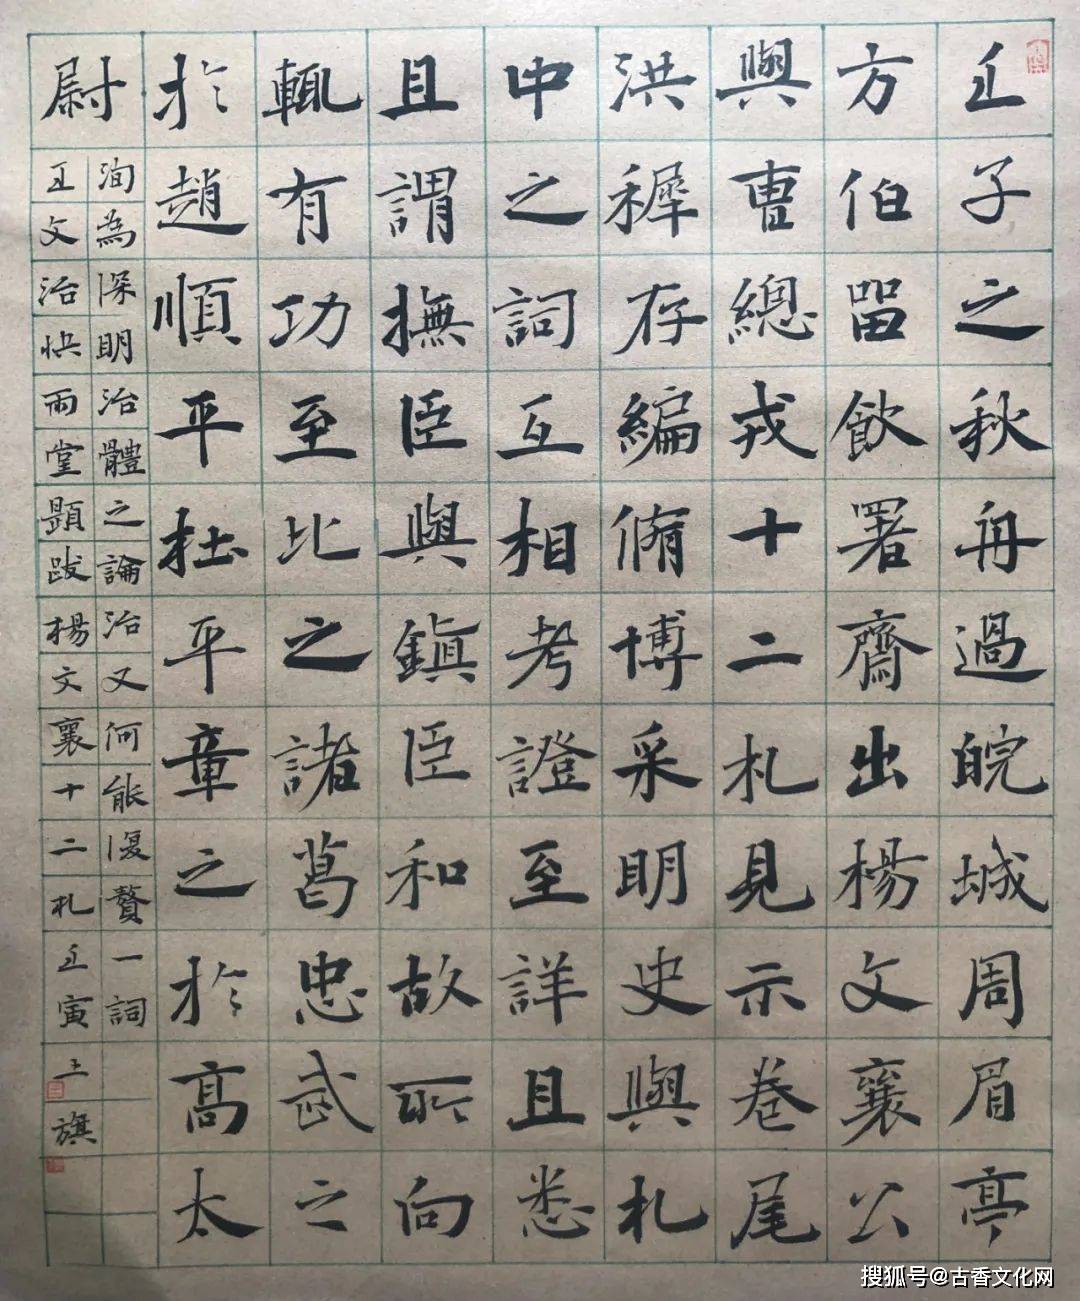 壬子之秋舟過皖城周眉亭
方伯留飲署齋出楊文襄公
與曹總戎十二札見示卷尾
洪穉存編脩博采明史與札
中之詞互相考證至詳且悉
且謂撫臣與鎮臣和故所向
輒有功至比之諸葛忠武之
於趙順平杜平章之於高太
尉
洵為深明治體之論治又何能復贅一詞
王文治快雨堂題跋楊文襄十二札壬寅王旗
搜狐号@古香文化网